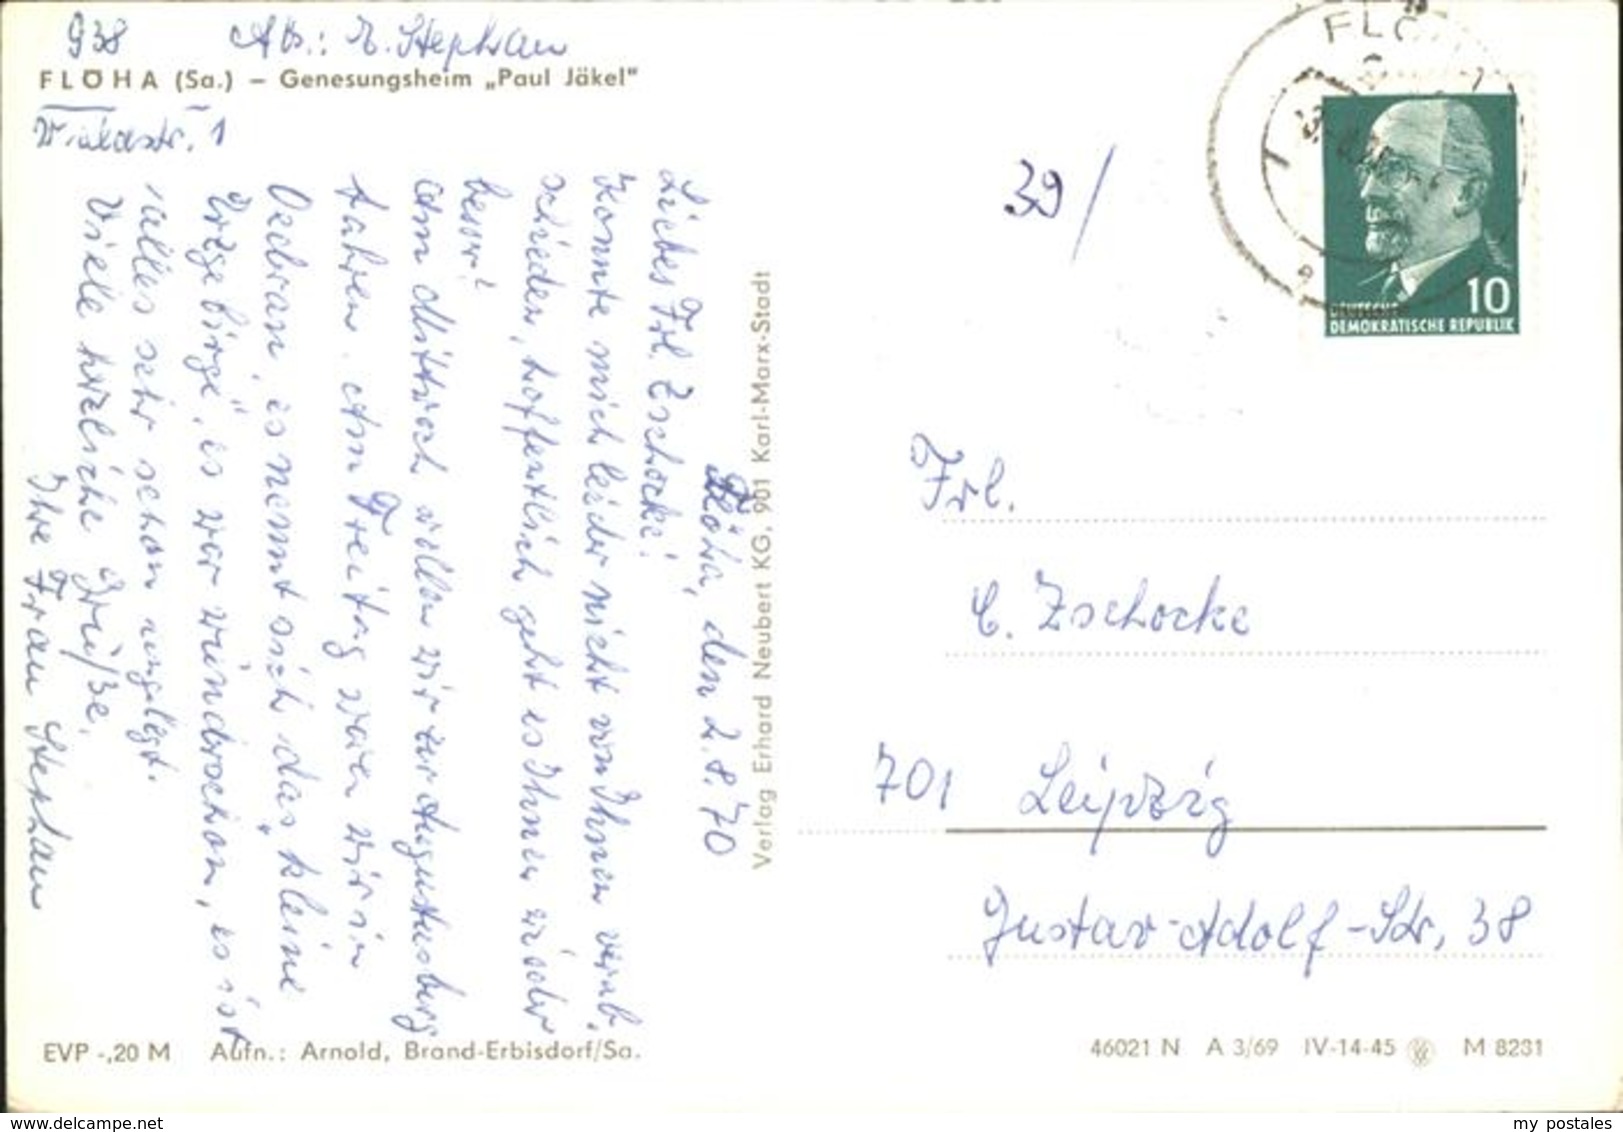 938 Abs.: R. Stephan
FLÖHA (Sa.) – Genesungsheim „Paul Jäkel"
Waldstr. 1
Flöha, den 2.8.70
Liebes Frl. Zschocke!
Konnte mich leider nicht von Ihnen verab.
schieden, hoffentlich geht es Ihnen wieder
besser?
Am Mittwoch wollen wir zur Augustusberg
fahren. Am Freitag waren wir in
Oederan, es nennt sich das „kleine
Erzgebirge", es war wunderschön, es ist
alles sehr schön angelegt.
Viele herzliche Grüße,
Ihre Frau Stephan
Verlag Erhard Neubert KG, 901 Karl-Marx-Stadt
39/
FLÖ
10
DEUTSCHE
DEMOKRATISCHE REPUBLIK
Frl.
C. Zschocke
701 Leipzig
Gustav-Adolf-Str. 38
EVP -,20 M Aufn.: Arnold, Brand-Erbisdorf/Sa.
46021 N A 3/69 IV-14-45 M 8231
my postales
www.delcampe.net